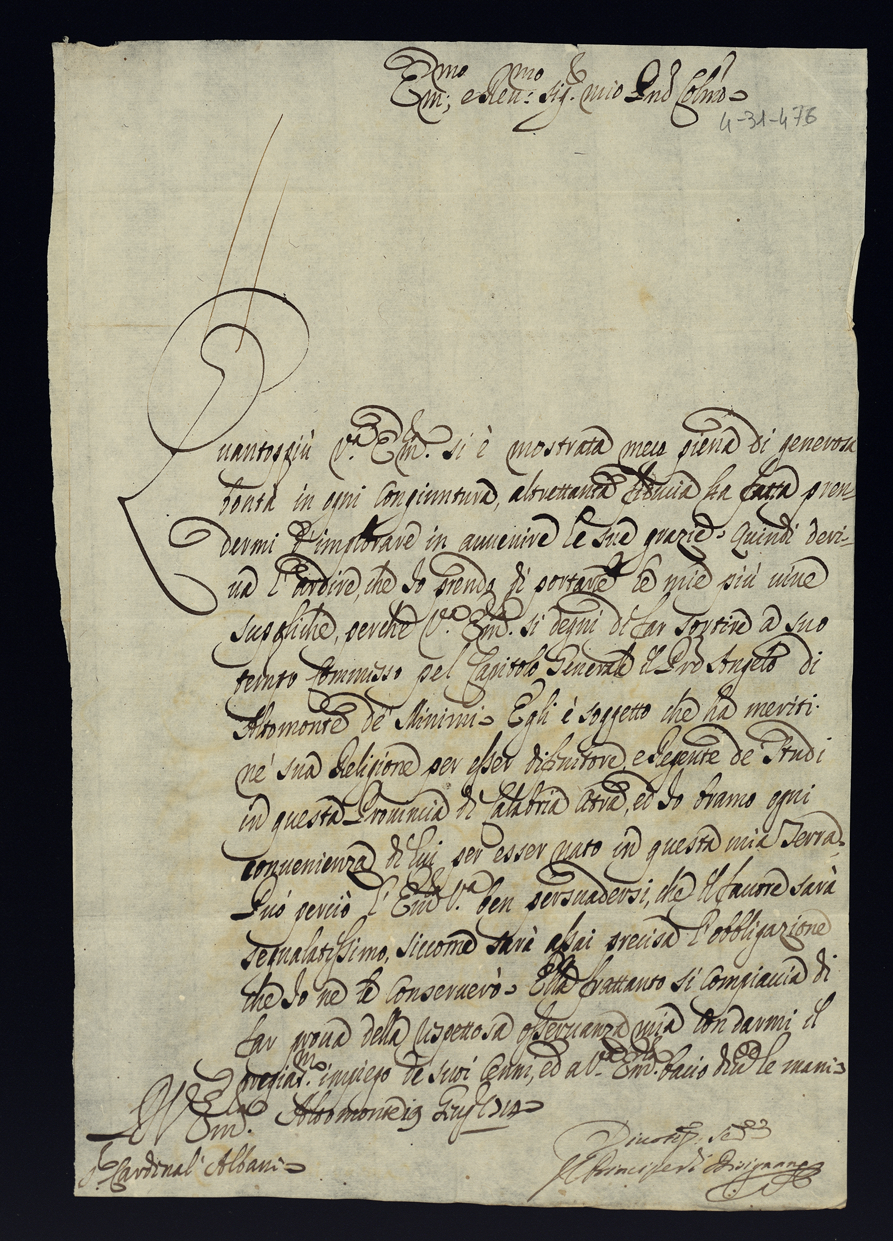 Em:mo e Reu:mo Sig.r mio Pnd Colmo
4-31-476
Quantoppiù V.a Em.za si è mostrata meco piena di generosa
bontà in ogni congiuntura, altrettanta fiducia ha fatta pren-
dermi d'implorare in auuenire le sue grazie. Quindi deri-
ua l'ardire, che Io prendo di portarle le mie più uiue
suppliche, perche V.a Em.za si degni di far sortire a suo
tempo Commisso pel Capitolo Generale il Pre Angelo di
Altomonte de' Minimi. Egli è soggetto che ha meriti
ne' sua Religione per esser difinitore, e Regente de Studi
in questa Prouincia di Calabria Citra, ed Io bramo ogni
conuenienza di lui per esser nato in questa mia Terra.
Può perciò l'Em.za V.a ben persuadersi, che il fauore sarà
segnalatissimo, siccome sarà assai precisa l'obbligazione
che Io ne le Conseruerò. Ella frattanto si Compiaccia di
far proua della rispettosa osseruanza mia con darmi il
pregiat.mo impiego de suoi Cenni, ed a V.a Em.za bacio le mani
V Em.za Altomonte 19
Sr Cardinal' Albani
Diuotis. Se.re
Il Principe di Bisignano